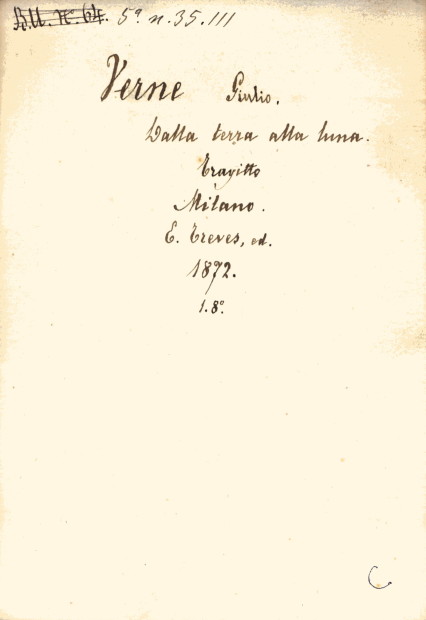 B.U. IC. 64. 5ª n.35.III
Verne Giulio.
Dalla terra alla luna.
Tragitto
Milano.
E. Treves, ed.
1872.
1.8º.
C